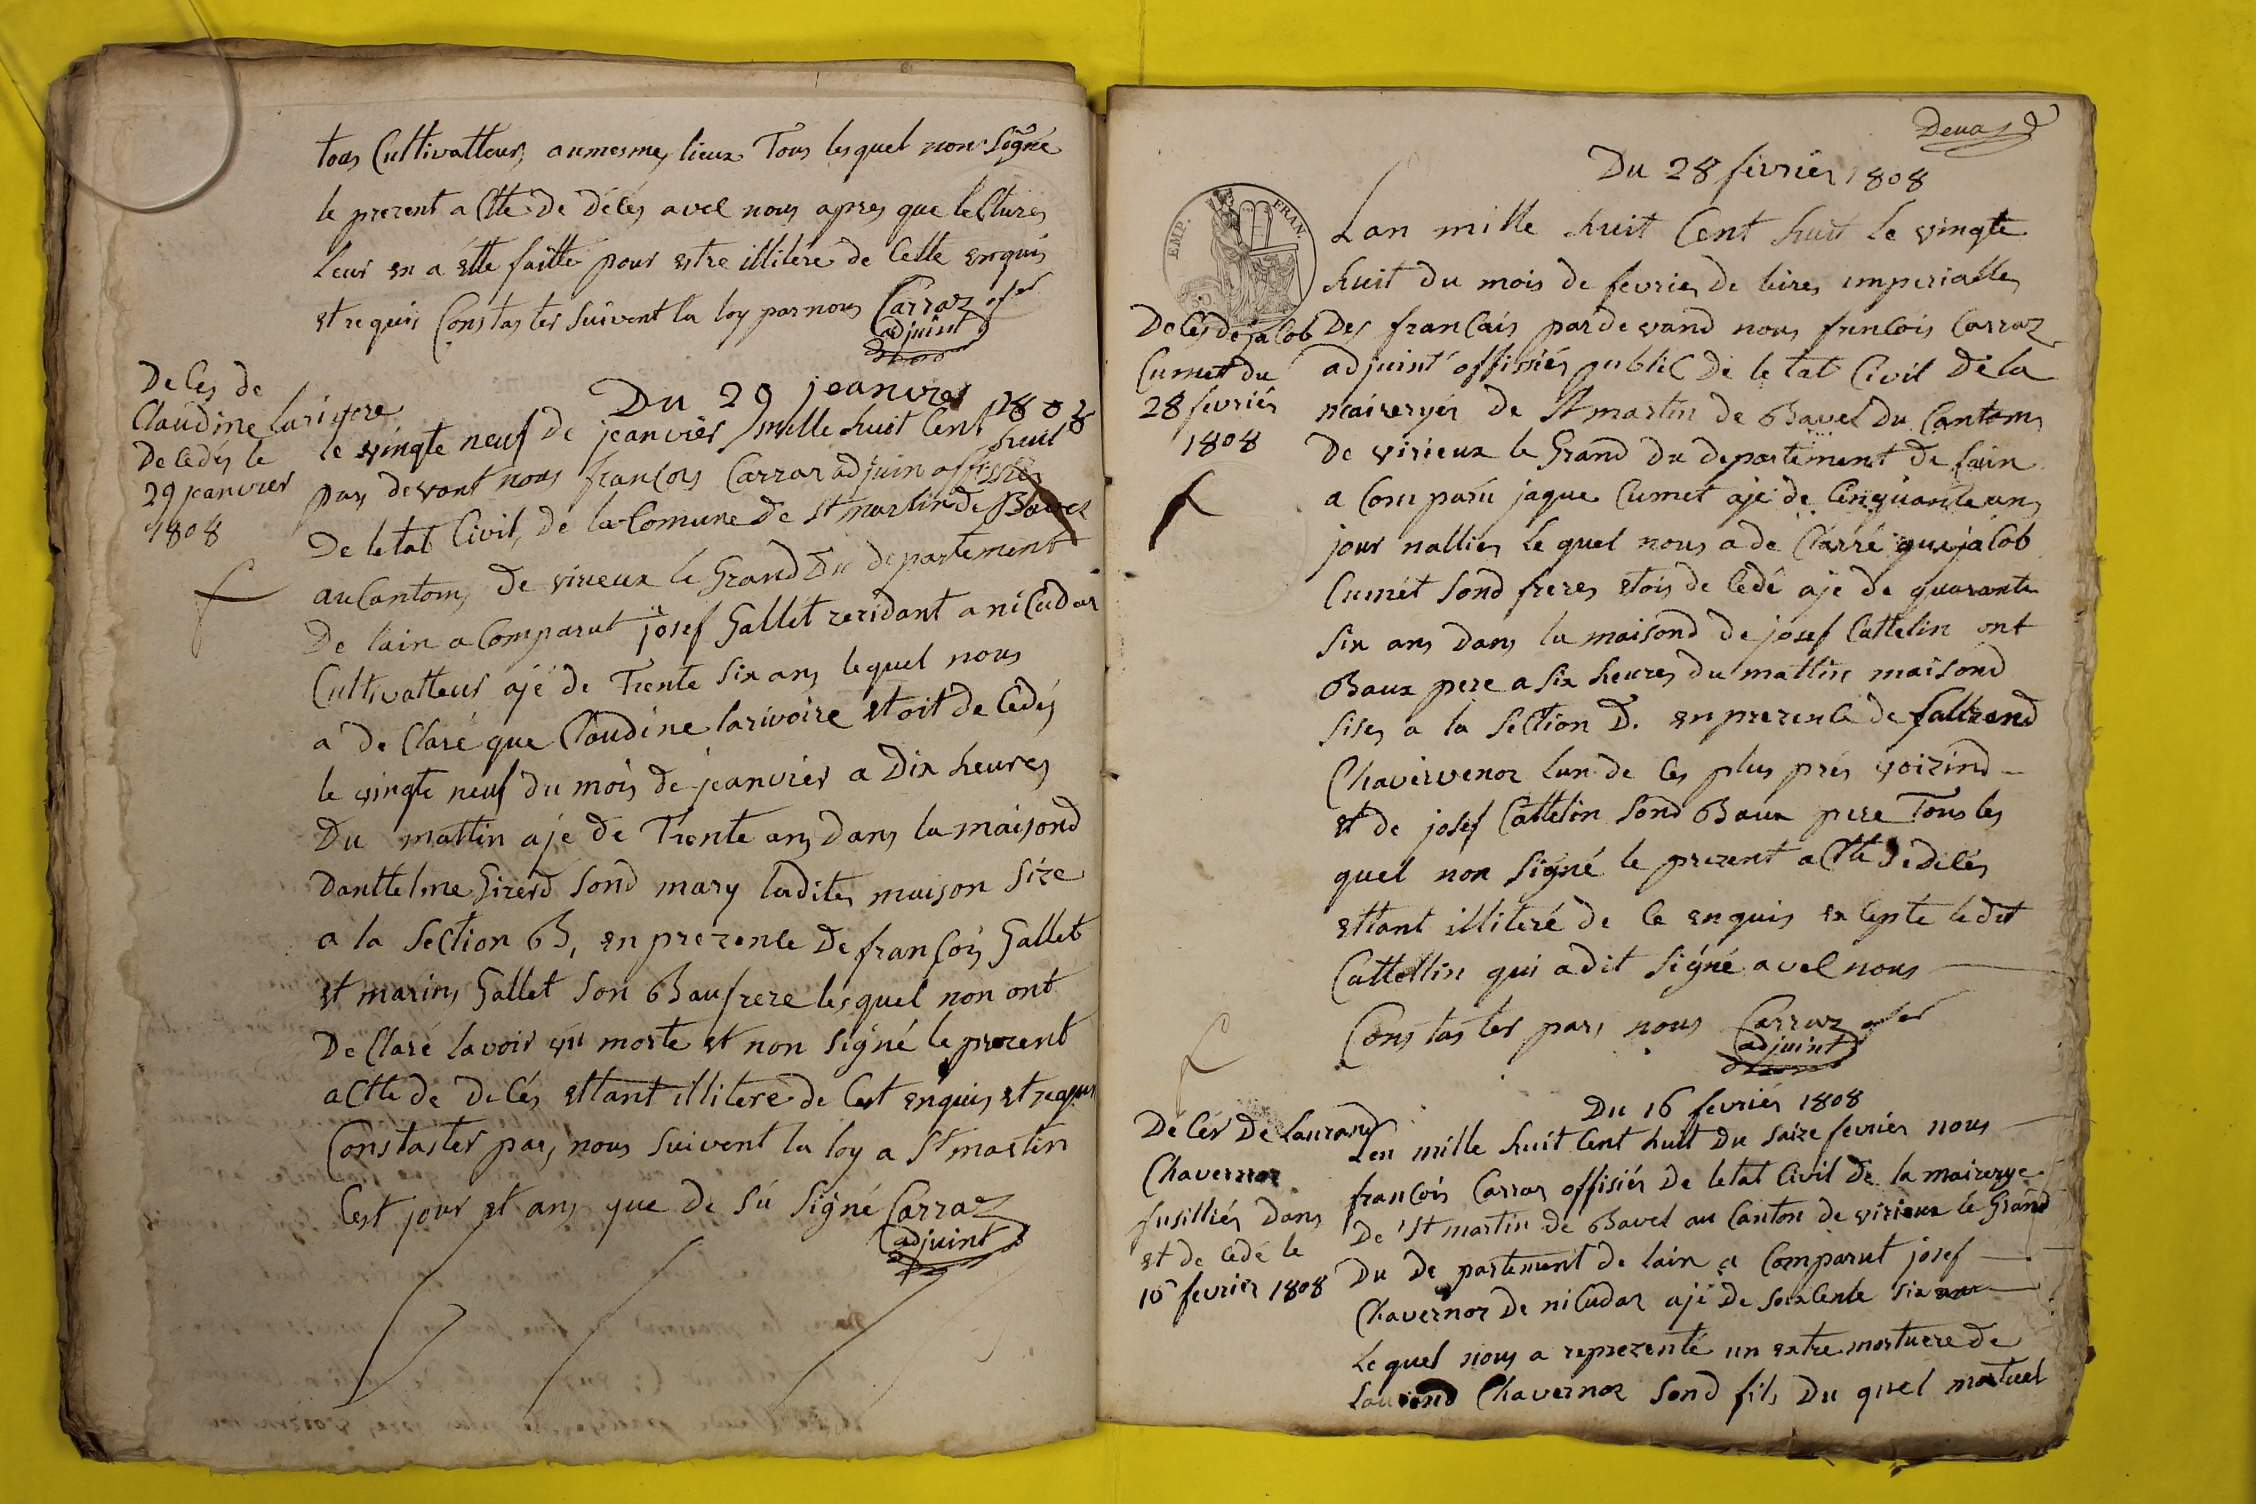 tous Cultivatteur, aumesmes lieux Tous lesquel non Signé
le prezent actte de décés avec nous apres que lectures
leur en a étte faitte pour estre illitére de Cette enquis
et requis Constaster suivent la loy par nous Carraz ofer
adjuint
De Ces de
Claudine larivore
De cedés le
29 jeanvier
1808
Du 29 jeanvier 1808
le vingte neuf de jeanvier mille huit Cent huit
par devant nous françois Carraz adjuin offisiér
De letat Civil, de la Comune de St martin de Bavel
au Cantom, de virieux le Grand Du departement
De lain a Comparut josef Gallét rezidant a niCudar
Cultivatteur ajé de Trente six ans lequel nous
a de Claré que Claudine larivoire etoit de Cédés
le vingte neuf du mois de jeanvier a Dix heures
Du mattin ajé de Trente ans Dans la maisond
Danttelme Girerd sond mary ladites maison size
a la Section B, en prezence De françois Gallet
et marins Gallet son Baufrere lesquel non ont
De Claré lavoir vü morte et non signé le prezent
actte de decés ettant illitere de Cest enquis et requis
Constaster par, nous suivent la loy a St martin
Cest jour et ans que de sú signé Carraz
adjuint
Du 28 fevrier 1808
EMP. FRAN.
Lan mille huit Cent huit le vingte
huit du mois de fevries de leires imperialles
DeCés de jaCob
Cumet du
28 fevriér
1808
Des franCais par de vand nous francois Carraz
adjuint offisiér publiC de le tat Civil De la
maireryér de St martin de Bavel Du Cantom,
De virieux le Grand Du departement De lain
a Comparu jaque Cumet ajé de Cinquante ans
jour nallier le quel nous a de Clarré que jaCob
Cumét sond freres etois de Cedé ajé de quarante
six ans Dans la maisond de josef Cattelin ont
Baux pere a six heures du mattin maisond
sises a la section D. en prezence de
Chavervenoz lun de Ces plus prés voizind
et de josef Cattelin sond Baux pere Tous les
quel non signé le prezent actte de decés
ettant illiteré de Ce enquis exCepte le dit
Cattellin qui a dit signé avec nous
Constaster par, nous Carraz ofer
adjuint
Du 16 fevriér 1808
DéCér De Laurand
Chavernoz
fusilliér Dans
et de Cedé le
16 fevrier 1808
Len mille huit Cent huit Du saize fevriér nous
françois Carraz offisiér De letat Civil De la mairerye
De St martin de Bavel au Canton de virieux le Grand
Du De partement de lain a Comparut josef
Chavernoz De niCudar ajé De soixCente six ans
Le quel nous a reprezenté un extre mortuere de
Laurend Chavernoz sond fils Du quel mortuel